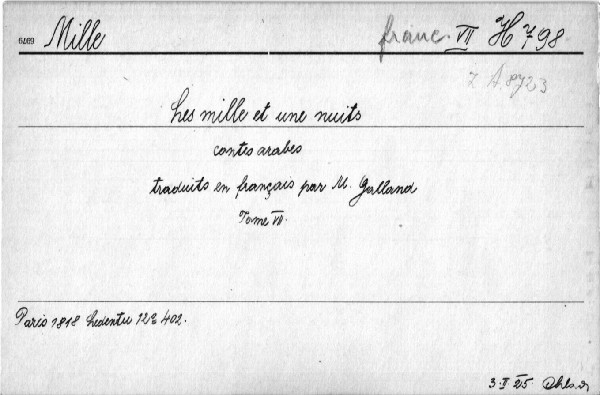 Mille franc. VII H 798
Z A.8723
Les mille et une nuits
contes arabes
traduits en français par M. Galland
Tome VII.
Paris 1818 Ledentu 12° 402.
3 II 25